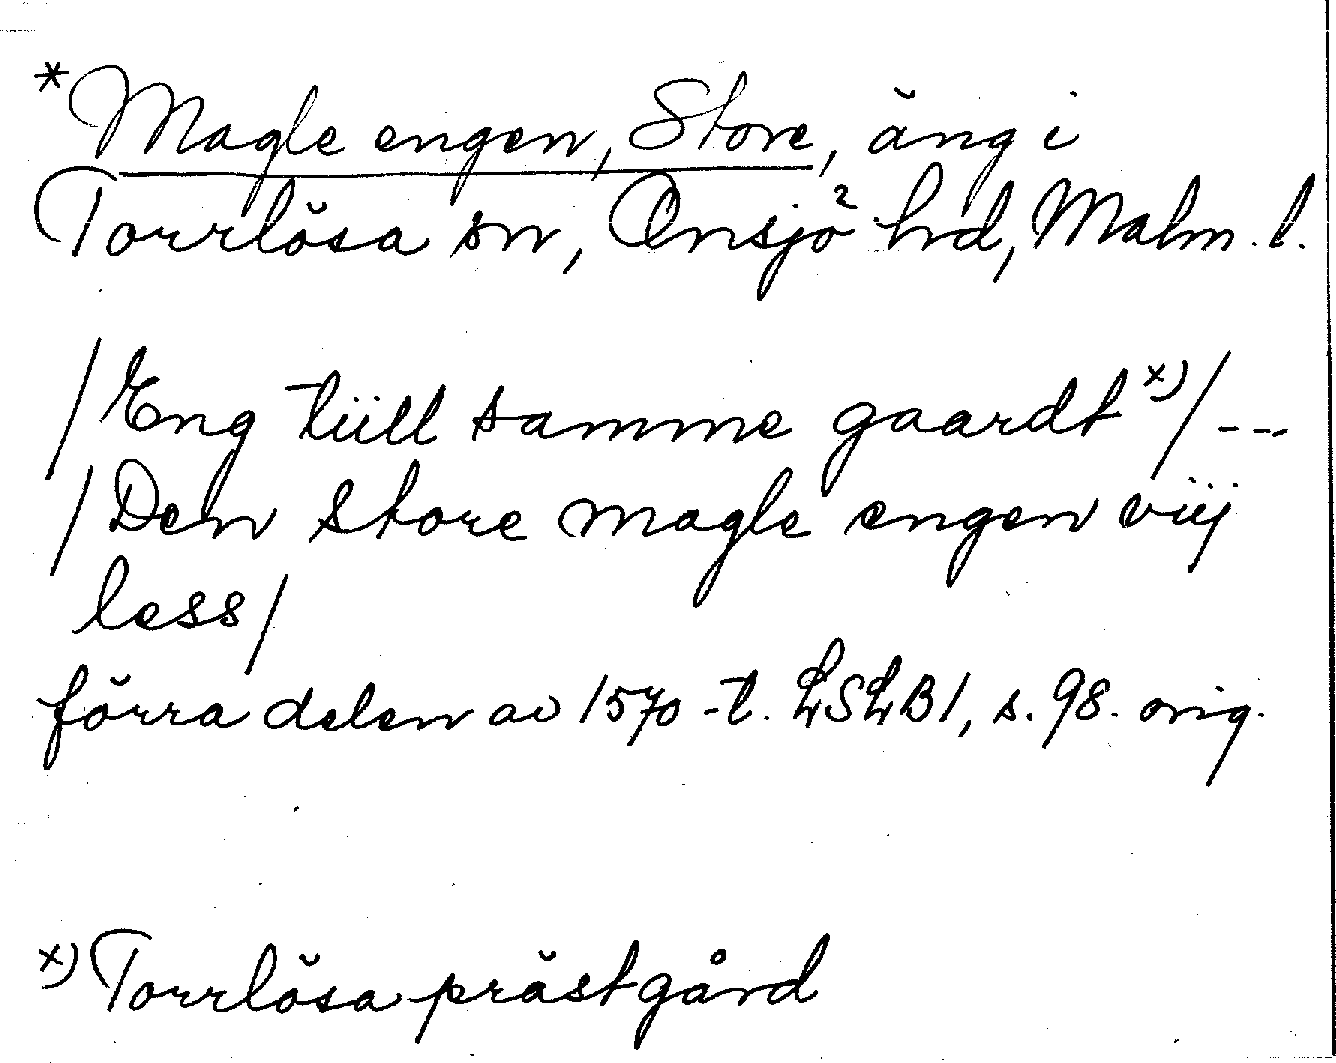 *Magle engen, Store, äng i
Torrlösa sn, Onsjö hd, Malm. l.
/Eng tiill samme gaardt x)/ ---
/Den store magle engen viij
less/
förra delen av 1570-t. LSLB1, s. 98. orig.
x) Torrlösa prästgård